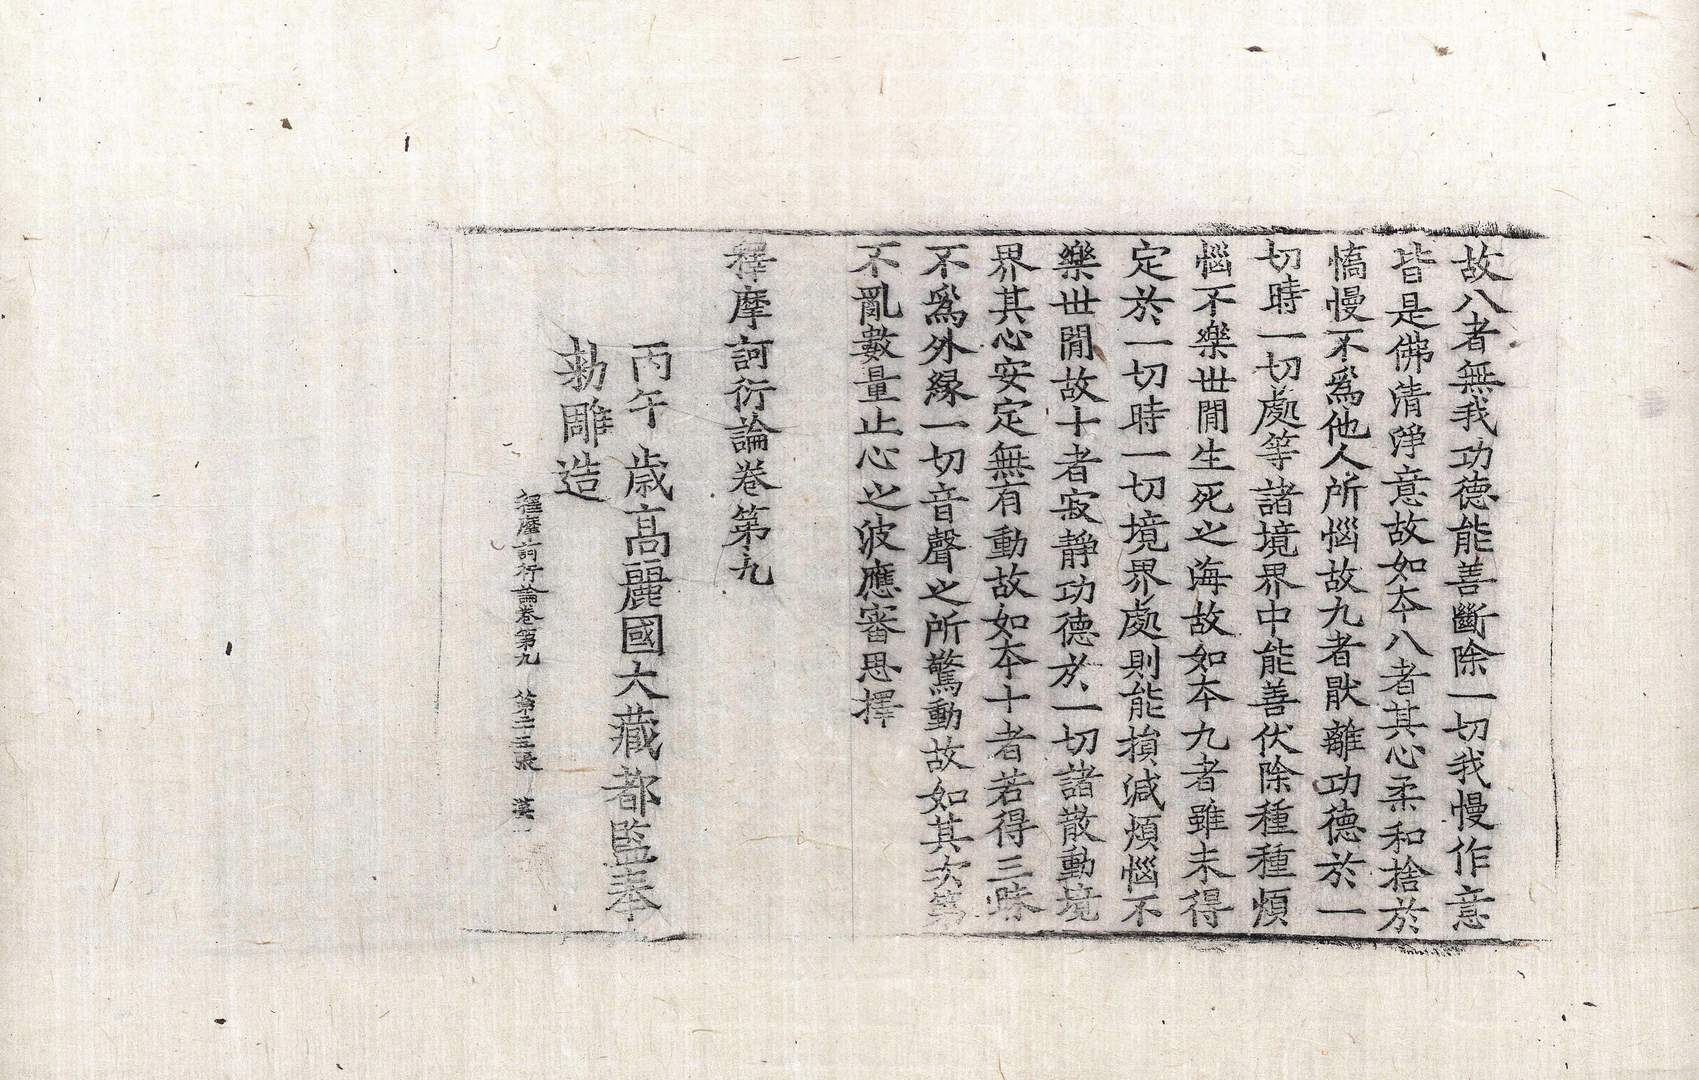 故八者無我功德能善斷除一切我慢作意
皆是佛清淨意故如本八者其心柔和捨於
憍慢不爲他人所惱故九者猒離功德於一
切時一切處等諸境界中能善伏除種種煩
惱不樂世閒生死之海故如本九者雖未得
定於一切時一切境界處則能損減煩惱不
樂世閒故十者寂靜功德於一切諸散動境
界其心安定無有動故如本十者若得三昧
不爲外緣一切音聲之所驚動故如其次第
不亂數量止心之波應審思擇
釋摩訶衍論卷第九
丙午歲高麗國大藏都監奉
勑雕造
釋摩訶衍論卷第九 第二十三張 漢